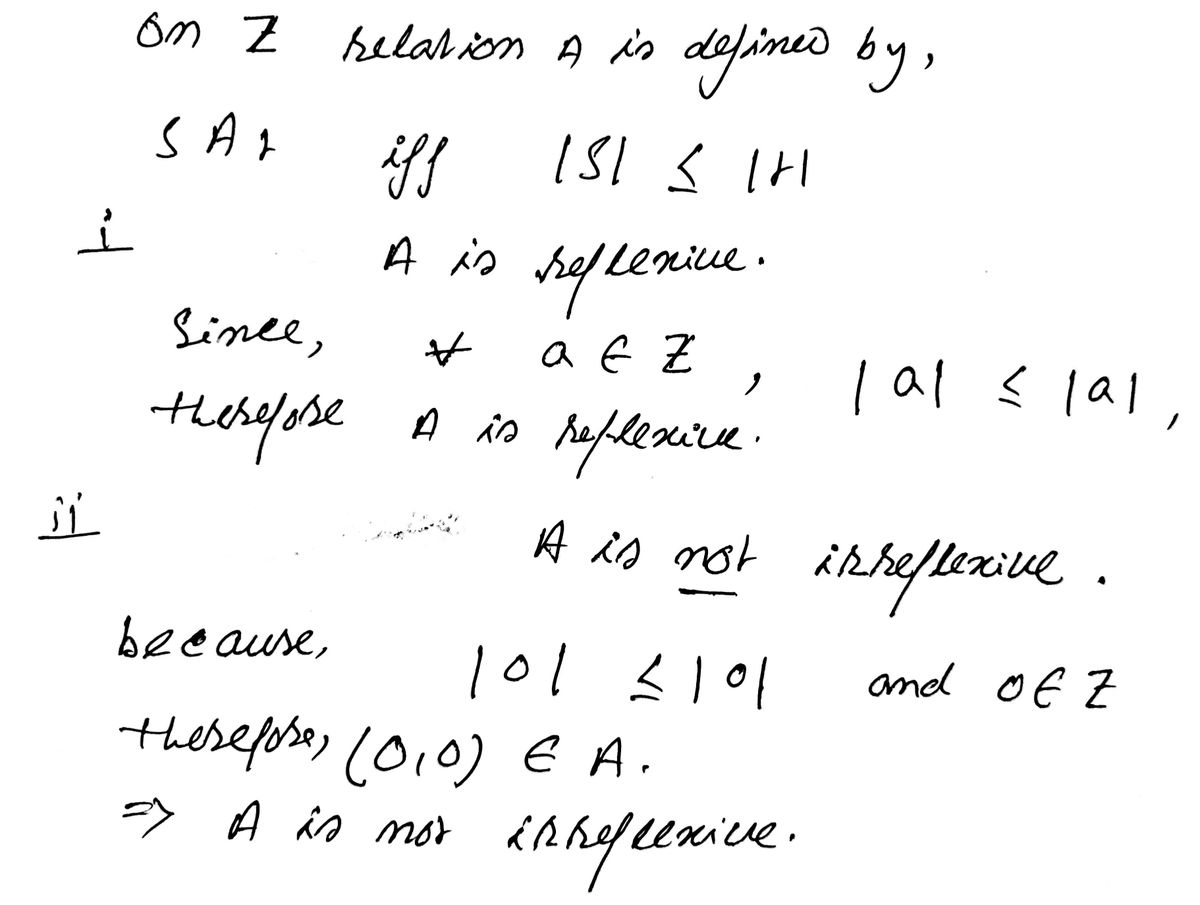 on Z relation A is defined by,
S A t iff |S| ≤ |t|
i
A is reflexive.
Since, ∀ a ∈ Z, |a| ≤ |a|,
therefore A is reflexive.
ii
A is not irreflexive.
because, |0| ≤ |0| and 0 ∈ Z
therefore, (0,0) ∈ A.
⇒ A is not irreflexive.